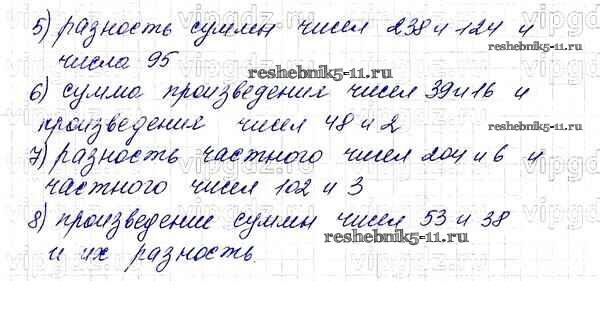 5) разность суммы чисел 238 и 124 и
числа 95
reshebnik5-11.ru
6) сумма произведения чисел 39 и 16 и
произведения чисел 48 и 2
7) разность частного чисел 204 и 6 и
частного чисел 102 и 3
8) произведение суммы чисел 53 и 38
reshebnik5-11.ru
и их разность.